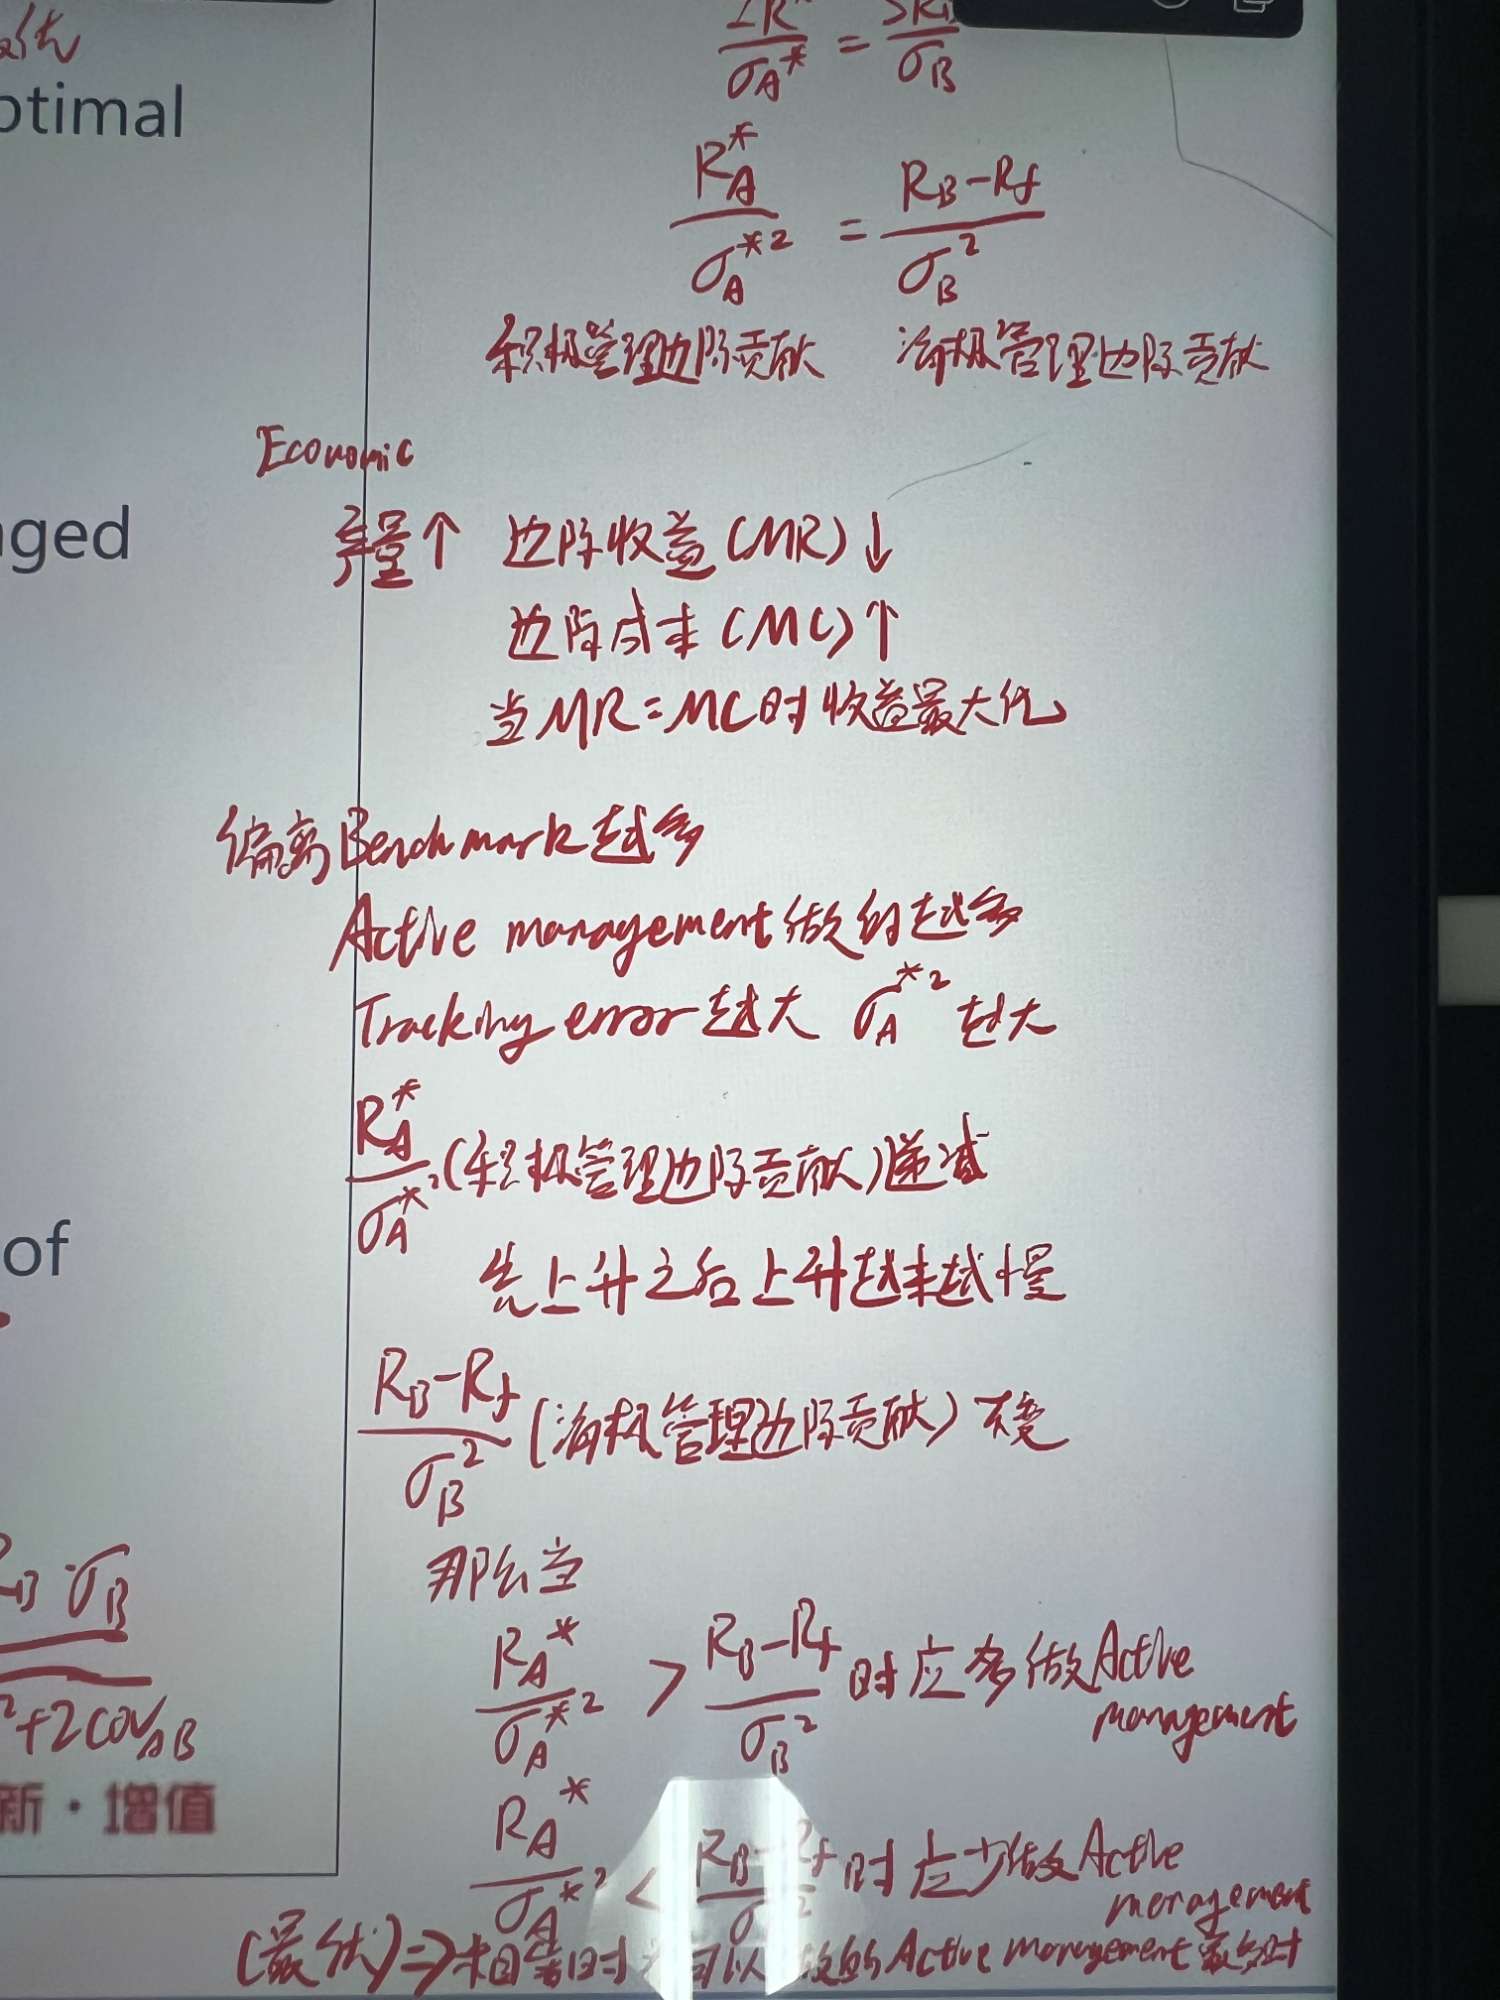 优
ptimal
σA* = σB
RA*/σA*² = (RB-Rf)/σB²
积极管理边际贡献 消极管理边际贡献
Economic
ged
产量↑ 边际收益(MR)↓
边际成本(MC)↑
当MR=MC时收益最大化
偏离Benchmark越多
Active management做的越多
Tracking error越大 σA*²越大
RA*/σA*²(积极管理边际贡献)递减
of
先上升之后上升越来越慢
(RB-Rf)/σB²(消极管理边际贡献)不变
B·σB
²+2COVAB
新·增值
那么当
RA*/σA*² > (RB-Rf)/σB² 时应多做Active
management
RA*/σA*² < (RB-Rf)/σ² 时应少做Active
management
(最优)⇒相等时 可以做的Active management最多时